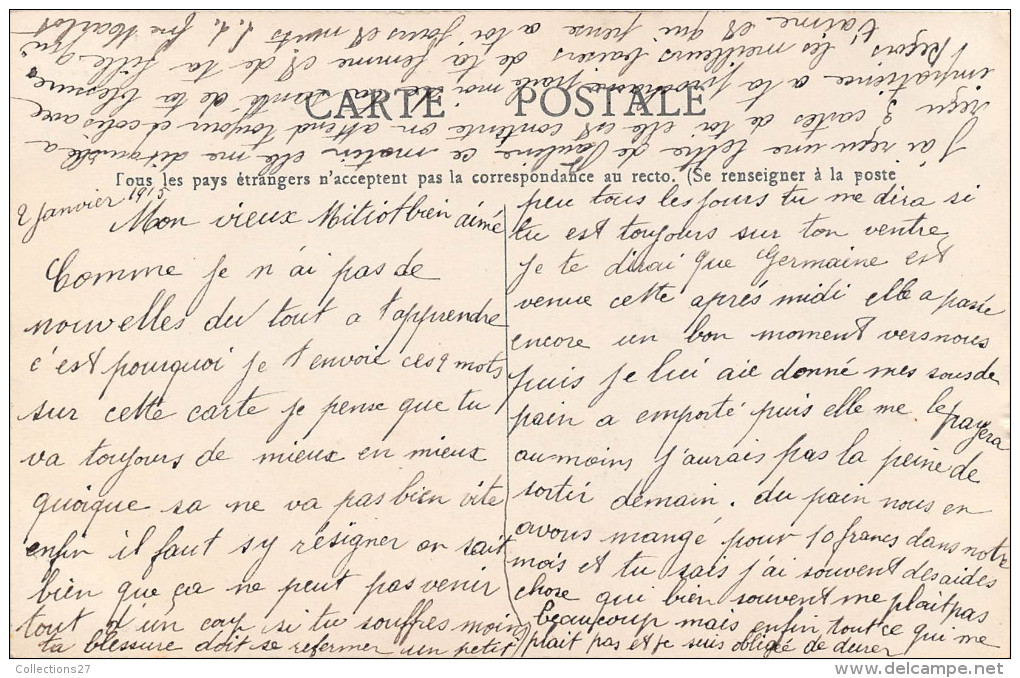 CARTE POSTALE
Tous les pays étrangers n'acceptent pas la correspondance au recto. (Se renseigner à la poste
2 Janvier 1915
Mon vieux Mitiot bien aimé
Comme je n'ai pas de
nouvelles du tout a t'apprendre
c'est pourquoi je t'envoie ces 2 mots
sur cette carte je pense que tu
va toujours de mieux en mieux
quoique sa ne va pas bien vite
enfin il faut sy résigner on sait
bien que ça ne peut pas venir
tout d'un coup si tu souffres moins
ta blessure doit se refermer un petit
peu tous les jours tu me dira si
tu est toujours sur ton ventre
je te dirai que Germaine est
venue cette après midi elle a passé
encore un bon moment vers nous
puis je lui aie donné mes sous de
pain a emporté puis elle me le payera
au moins j'aurais pas la peine de
sortir demain. du pain nous en
avons mangé pour 10 francs dans notre
mois et tu sais j'ai souvent des aides
chose qui bien souvent me plait pas
beaucoup mais enfin tout ce qui me
plait pas et je suis obligée de durer
J'ai reçu une lettre de Pauline ce matin elle ma dit quelle a
reçu 3 cartes de toi elle est contente on attend toujours et cela avec
impatience a la prochaine parle moi de la santé de ta blessure
Reçois les meilleurs baisers de ta femme et de ta fille qui
t'aime et qui pense a toi jours et nuits